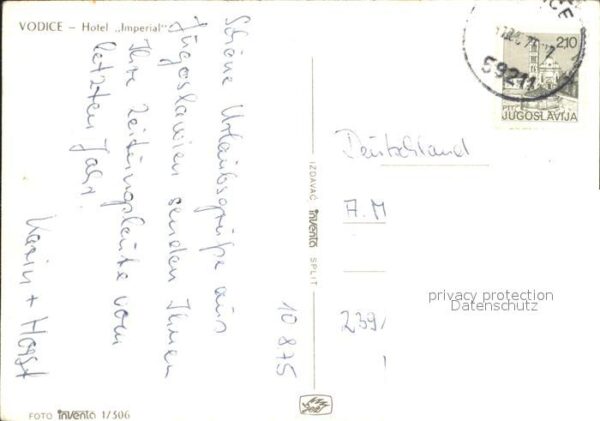 VODICE – Hotel „Imperial"
Schöne Urlaubsgrüße aus
Jugoslawien senden Ihnen
Ihre Zeitungsleute vom
letzten Jahr.
Karin + Horst
10 875
FOTO inventa 1/506
IZDAVAČ inventa SPLIT
2,10
JUGOSLAVIJA
59211
Deutschland
A. M
239
privacy protection
Datenschutz